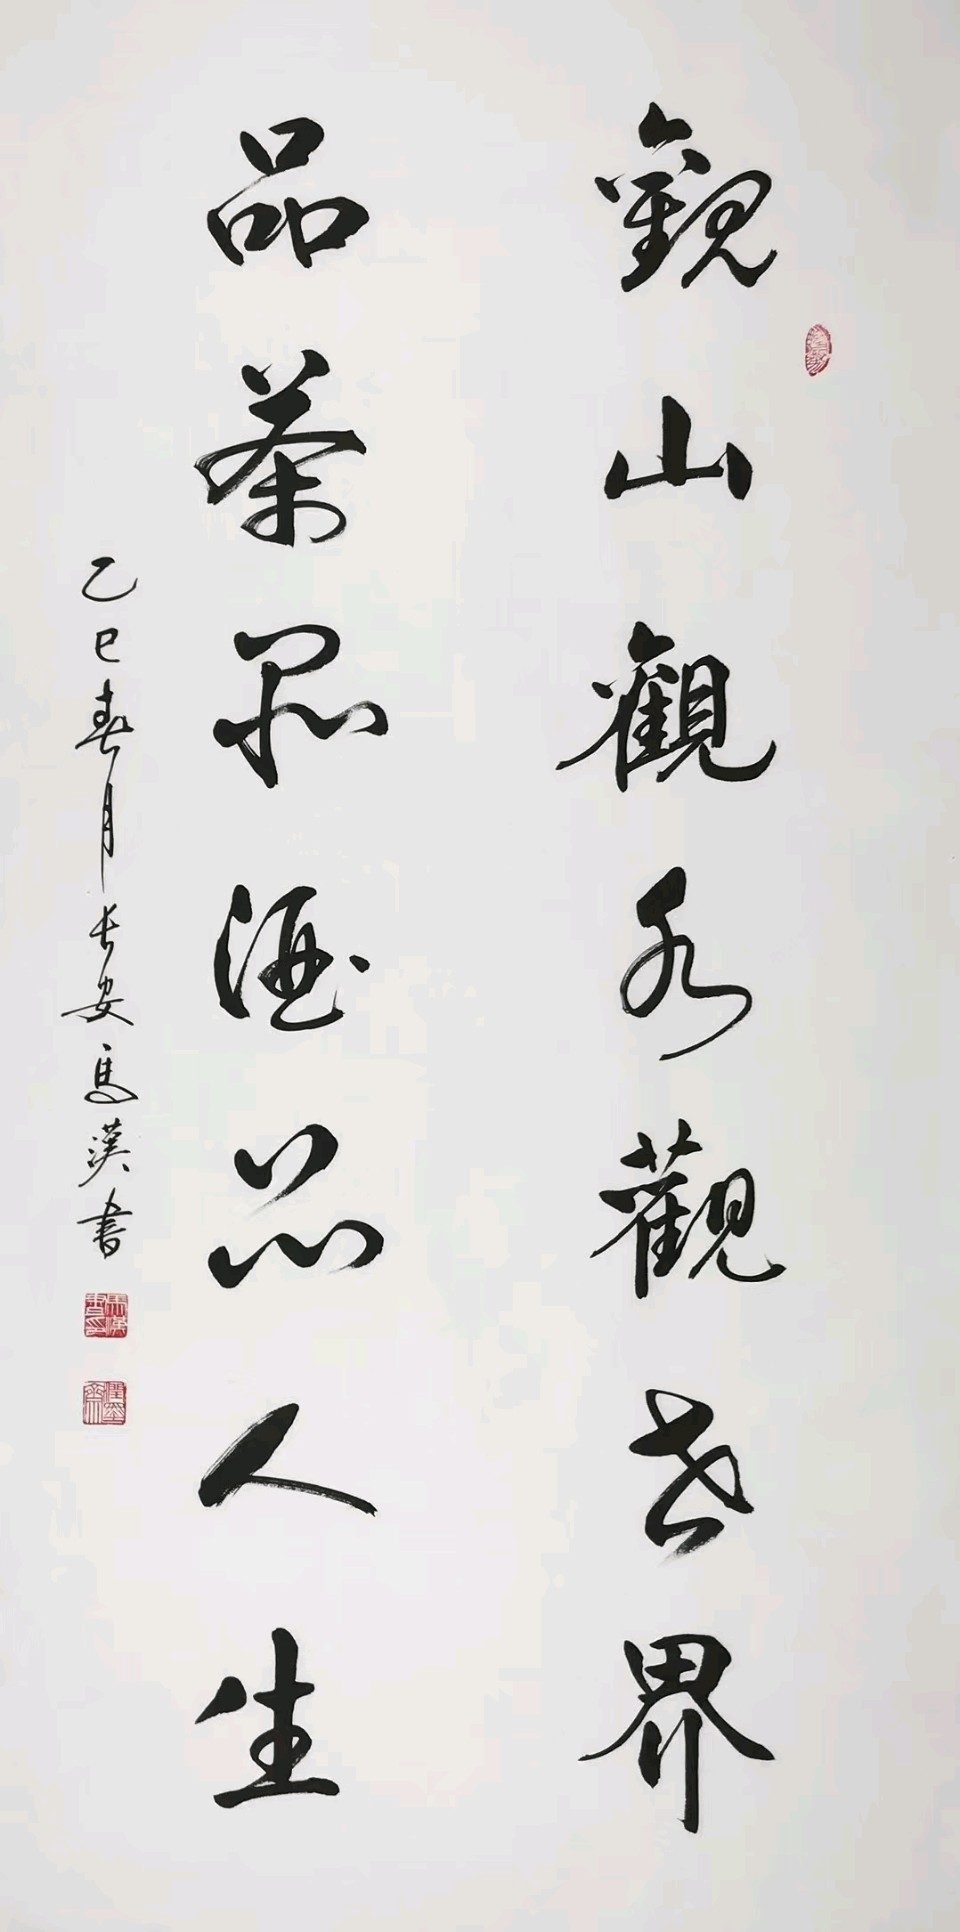 觀山觀水觀世界
品茶品酒品人生
乙巳春月長安馬漢書